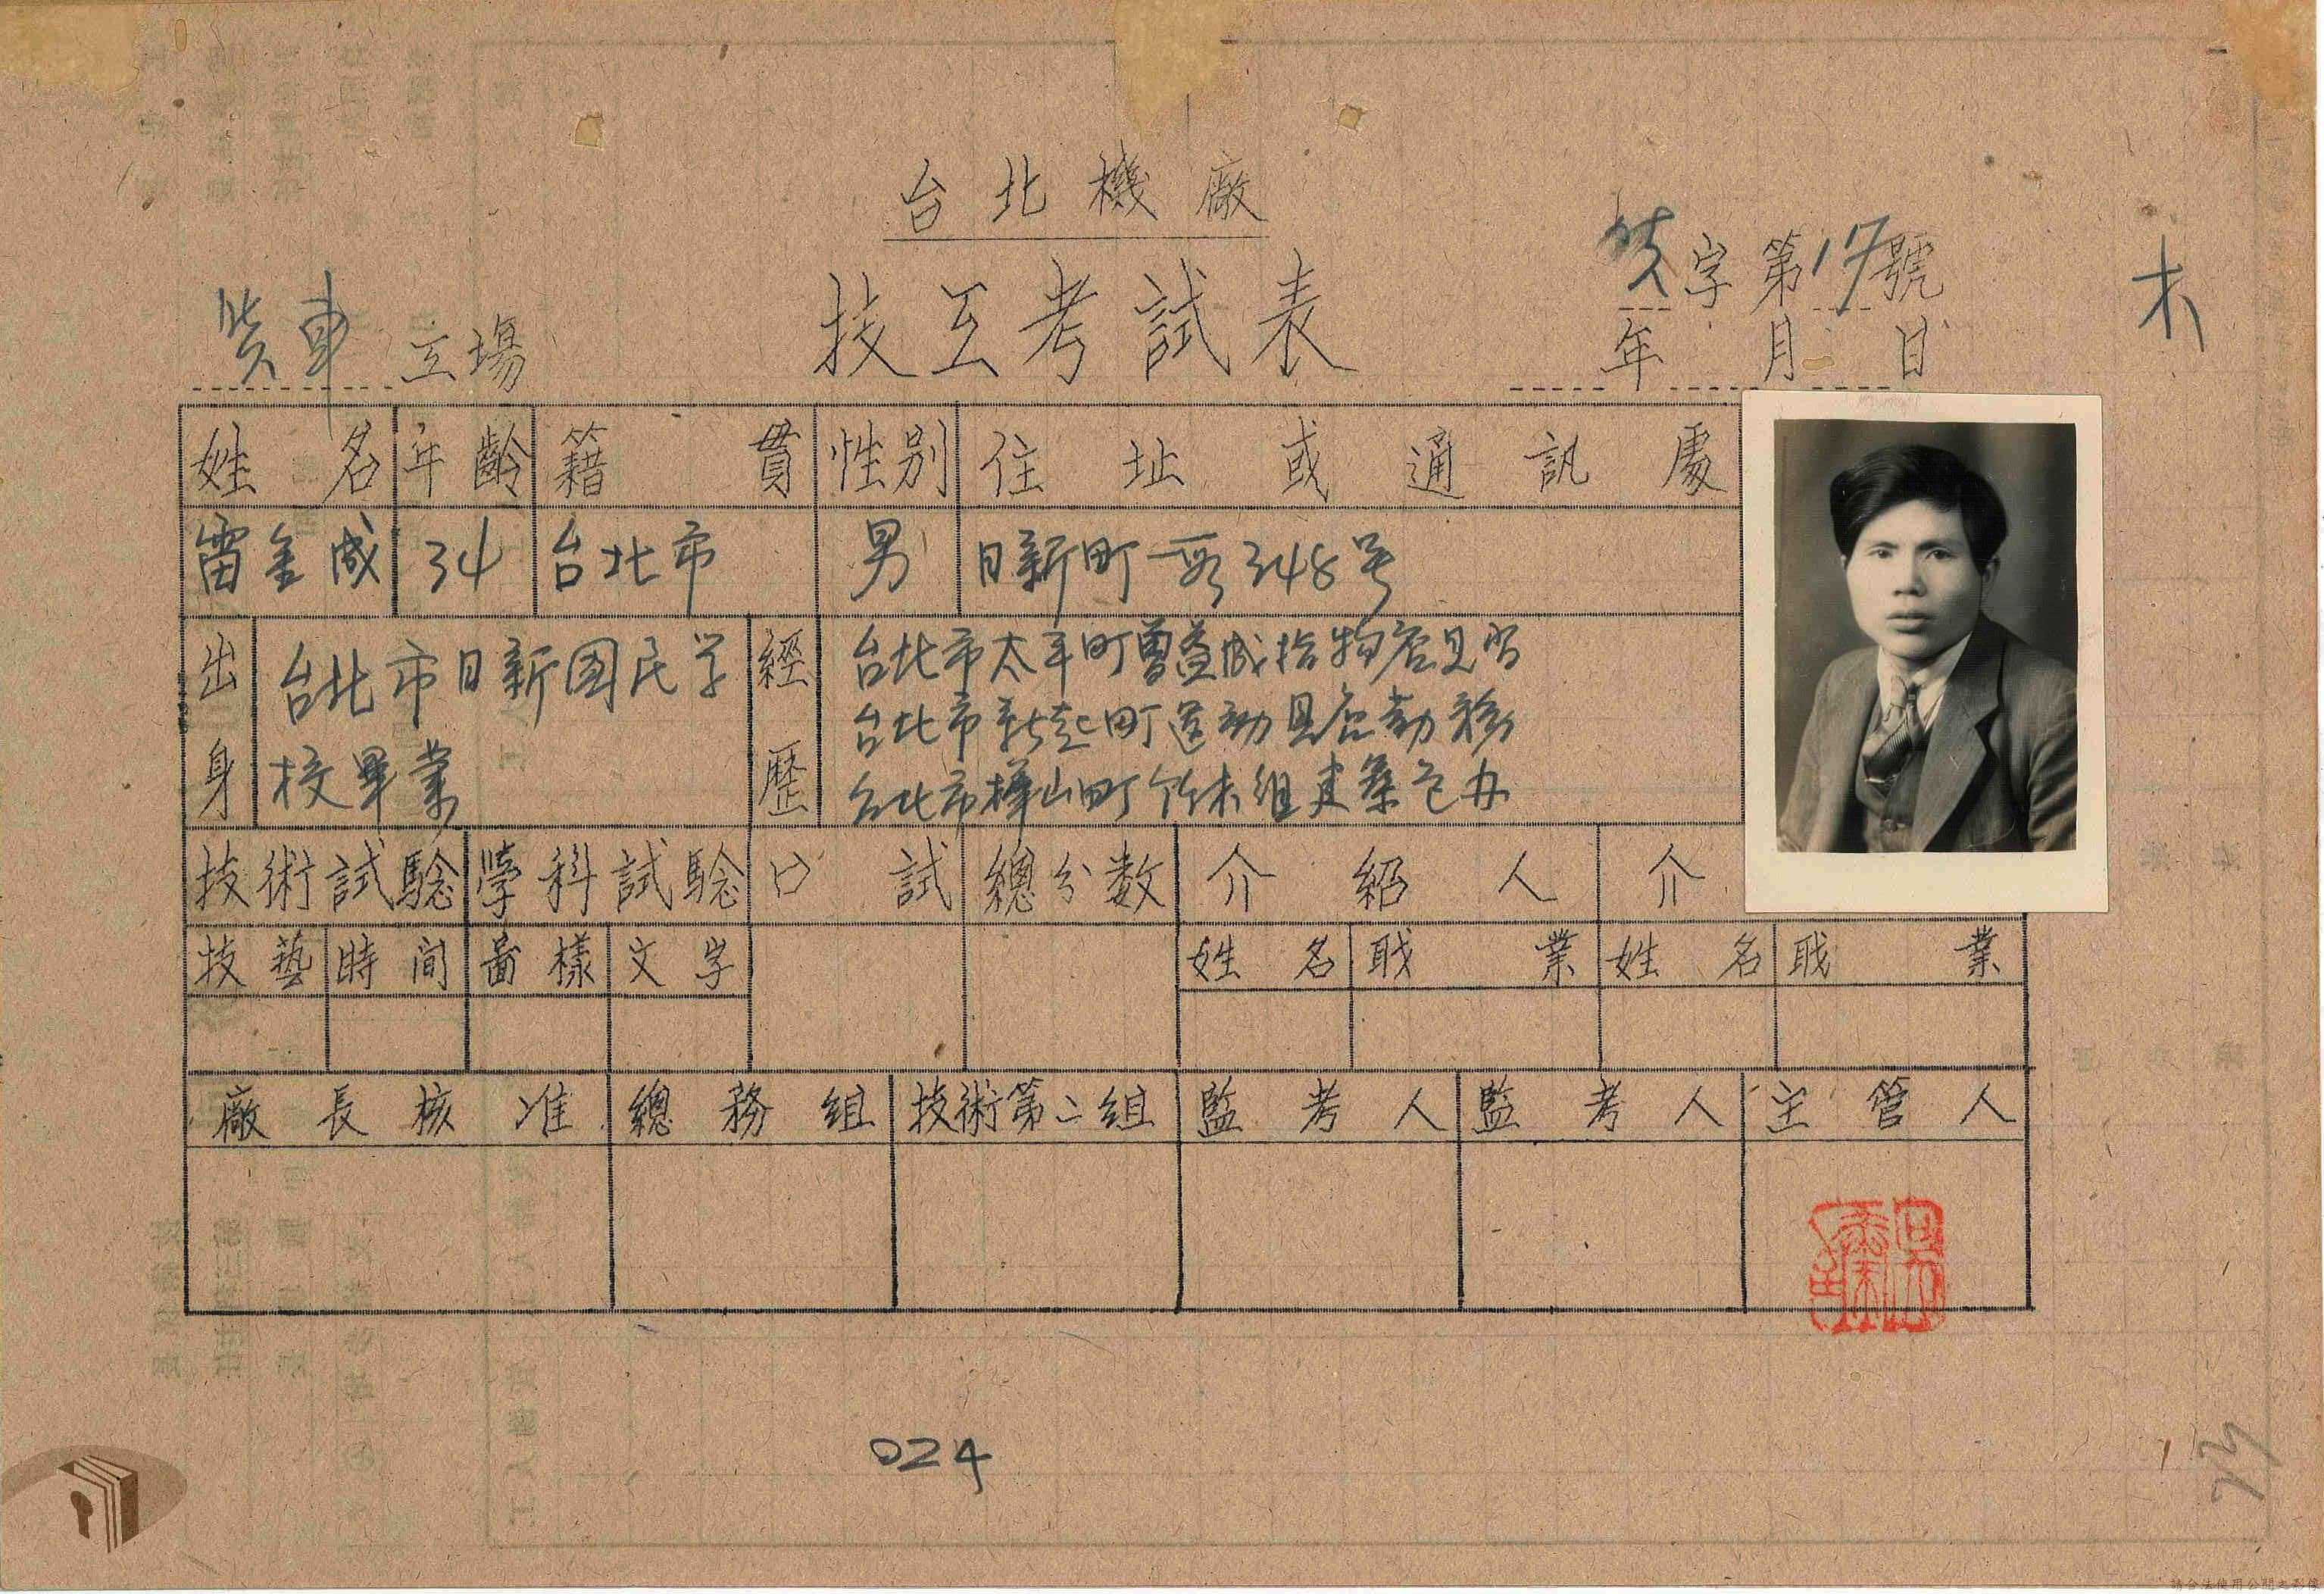 台北機廠
技工考試表
貨車工場
貨字第17號
年 月 日
木
姓名 年齡 籍貫 性別 住址或通訊處
雷金成 34 台北市 男 日新町一丁目348号
出身 台北市日新國民学校畢業
經歷
台北市太平町曽益成指物店見習
台北市新起町運動具店勤務
台北市樺山町竹本組建築包办
技術試驗 學科試驗 口試 總分数 介紹人 介
技藝 時間 圖樣 文字 姓名 職業 姓名 職業
廠長核准 總務組 技術第二組 監考人 監考人 主管人
024